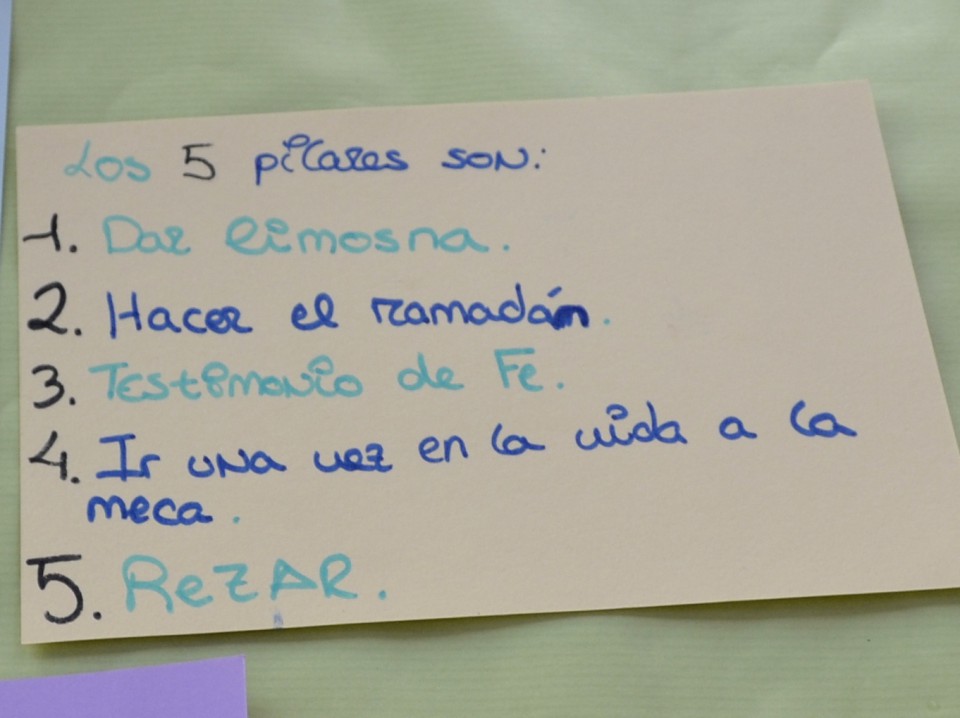 Los 5 pilares son:
1. Dar limosna.
2. Hacer el ramadán.
3. Testimonio de Fe.
4. Ir una vez en la vida a la
meca.
5. ReZAR.